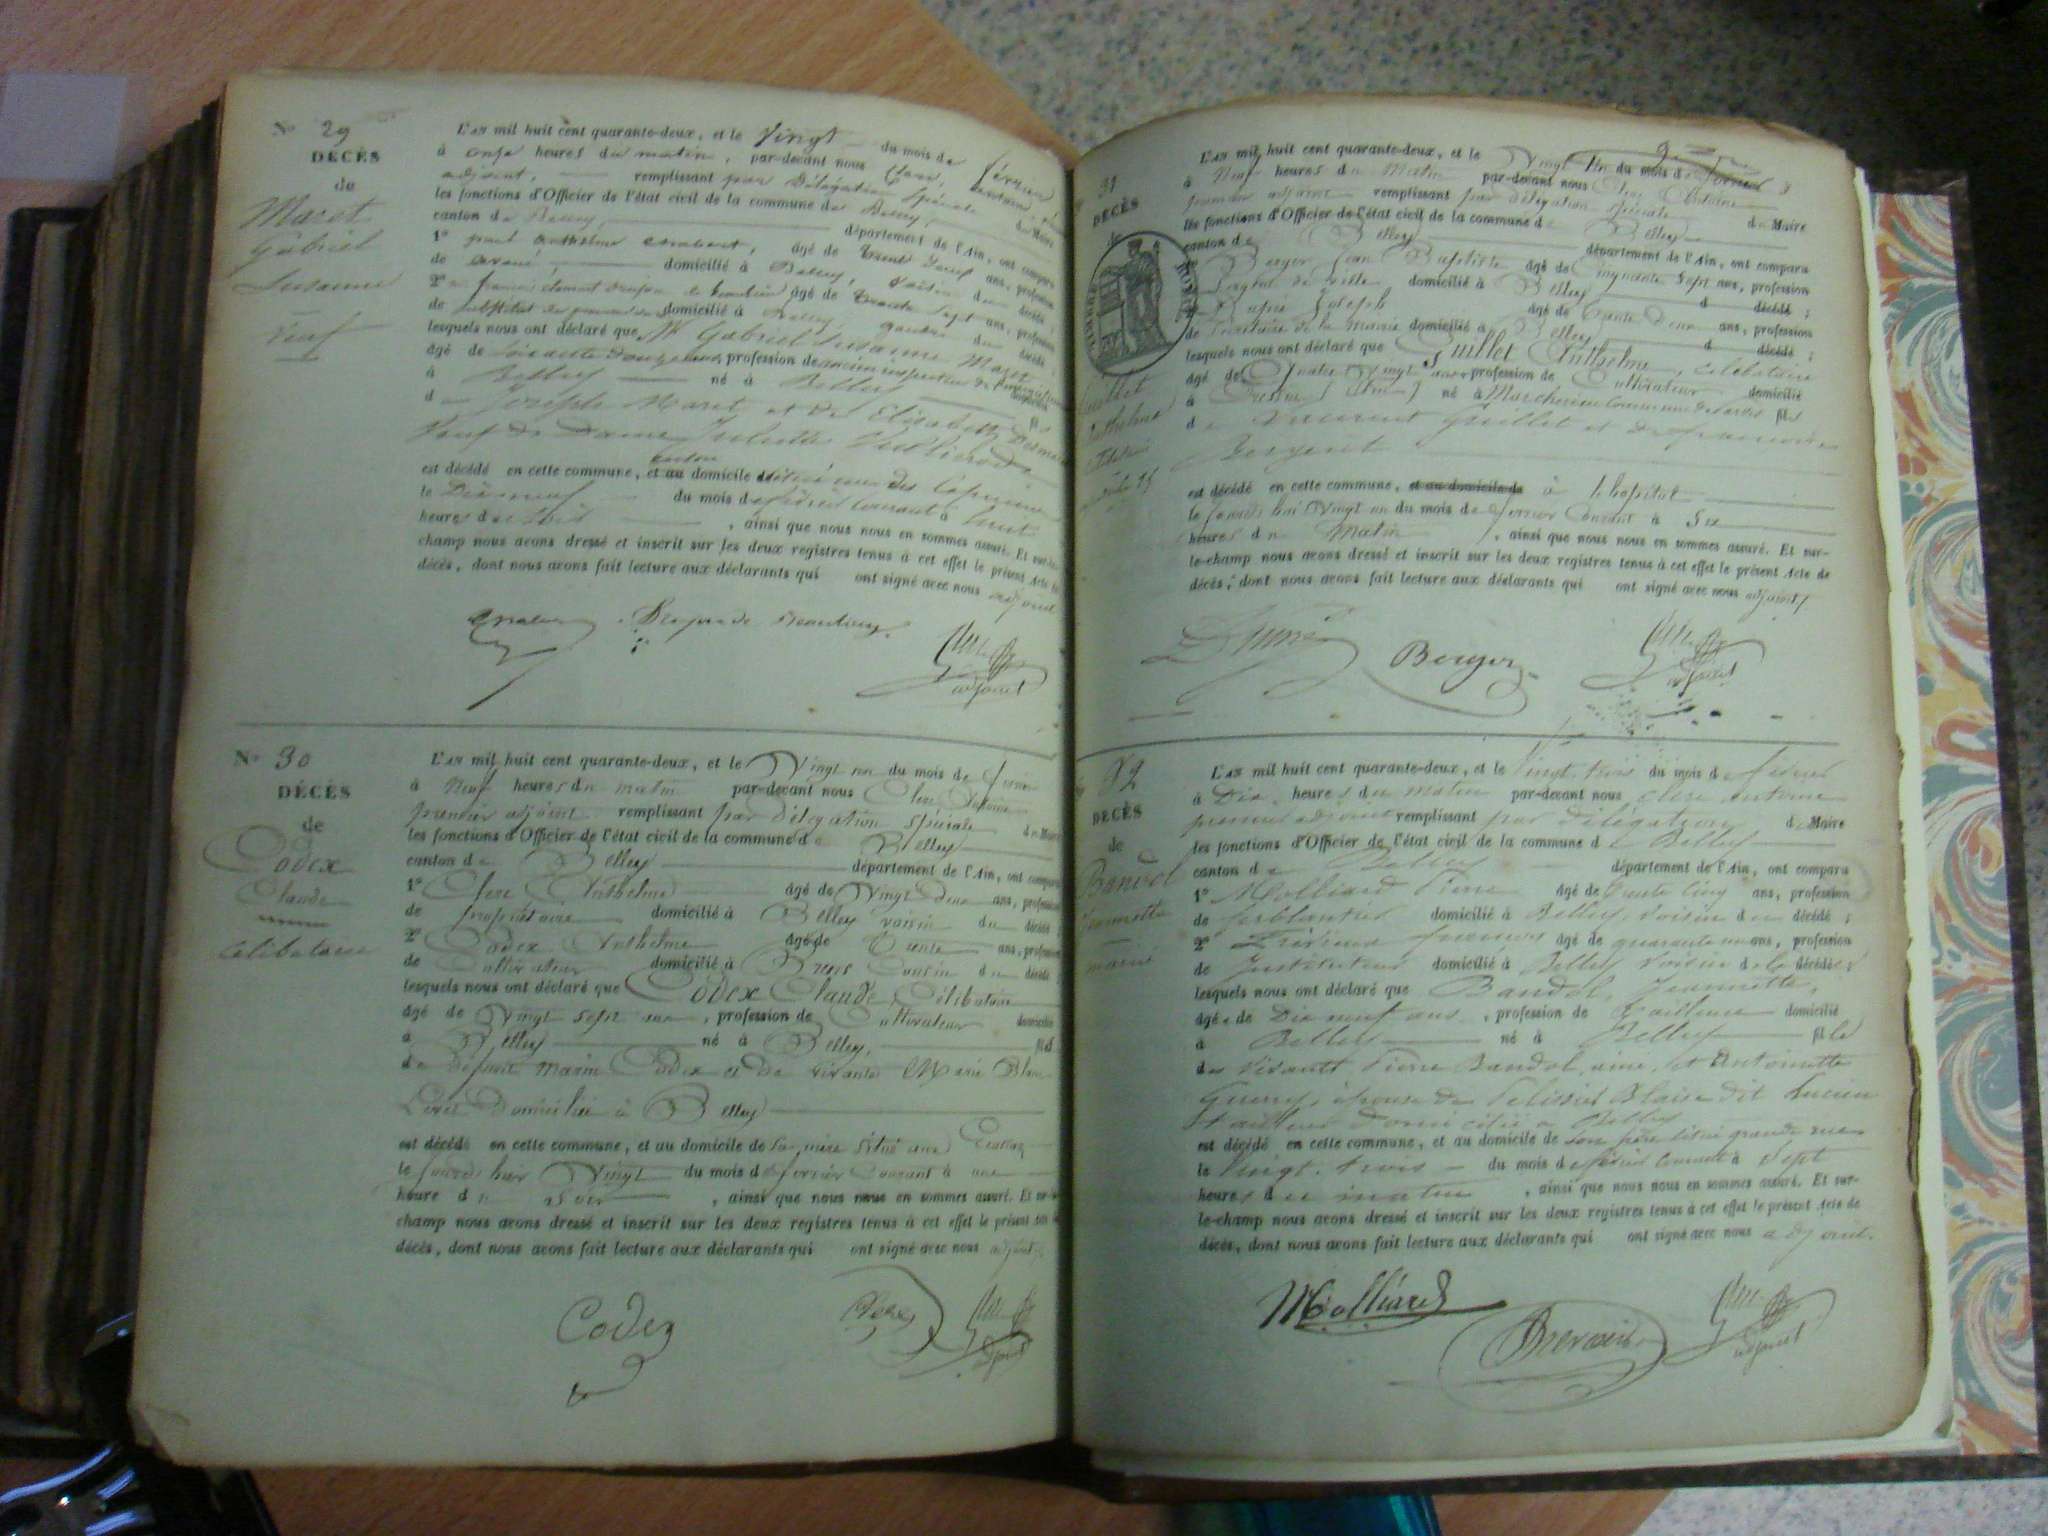 N° 29
DÉCÈS
de
Maret
Gabriel
Suzanne
veuf
L'AN mil huit cent quarante-deux, et le Vingt du mois de février
à onze heures du matin, par-devant nous Clerc, antoine,
adjoint, remplissant par délégation spéciale
les fonctions d'Officier de l'état civil de la commune de Belley, du Maire
canton de Belley, département de l'Ain, ont comparu
1° anthelme chabert, âgé de trente neuf ans, profession
de avoué, domicilié à Belley, voisin du décédé;
2° âgé de trente sept ans, profession
de substitut domicilié à Belley, du décédé;
lesquels nous ont déclaré que Mr Gabriel Suzanne Maret
âgé de soixante douze ans, profession de ancien inspecteur de domicilié
à Belley né à Belley fils
de Joseph Maret et de Elisabeth
veuf de Dame Juliette
est décédé en cette commune, et au domicile situé rue des Capucins
le Dix neuf du mois de février courant à huit
heures du soir, ainsi que nous nous en sommes assuré. Et sur-le-
champ nous avons dressé et inscrit sur les deux registres tenus à cet effet le présent Acte de
décès, dont nous avons fait lecture aux déclarants qui ont signé avec nous adjoint
adjoint
N° 30
DÉCÈS
de
Codex
Claude
Célibataire
L'AN mil huit cent quarante-deux, et le Vingt un du mois de février
à Neuf heures du matin par-devant nous Clerc Antoine
premier adjoint remplissant par délégation spéciale du Maire
les fonctions d'Officier de l'état civil de la commune de Belley
canton de Belley département de l'Ain, ont comparu
1° Clerc Anthelme âgé de Vingt Deux ans, profession
de propriétaire domicilié à Belley voisin du décédé;
2° Codex Anthelme âgé de Trente ans, profession
de Cultivateur domicilié à Brens Cousin du décédé
lesquels nous ont déclaré que Codex Claude, Célibataire
âgé de Vingt sept ans, profession de Cultivateur domicilié
à Belley né à Belley, fils
de défunt Marin Codex et de vivante Marie Blanc
Domicilié à Belley
est décédé en cette commune, et au domicile de sa mère situé aux
le jourd'hier Vingt du mois de février Courant à une
heure du soir, ainsi que nous nous en sommes assuré. Et sur-le-
champ nous avons dressé et inscrit sur les deux registres tenus à cet effet le présent Acte de
décès, dont nous avons fait lecture aux déclarants qui ont signé avec nous adjoint
Codex
Clerc
adjoint
31
DÉCÈS
de
Guillet
Anthelme
L'AN mil huit cent quarante-deux, et le Vingt Un du mois de février
à Neuf heures du Matin par-devant nous Clerc Antoine
premier adjoint remplissant par délégation spéciale du Maire
les fonctions d'Officier de l'état civil de la commune de Belley
canton de Belley département de l'Ain, ont comparu
Berger Jean Baptiste âgé de Cinquante Sept ans, profession
Sergent de ville domicilié à Belley d décédé;
Dupré Joseph âgé de Trente Deux ans, profession
de Secrétaire de la Mairie domicilié à Belley d décédé;
lesquels nous ont déclaré que Guillet Anthelme, célibataire
âgé de Quatre Vingt ans profession de Cultivateur domicilié
à né à fils
de Vincent Guillet et de françoise
Sergent
est décédé en cette commune, et au domicile de à l'hopital
le jourd'hui Vingt un du mois de février Courant à Six
heures du Matin, ainsi que nous nous en sommes assuré. Et sur-
le-champ nous avons dressé et inscrit sur les deux registres tenus à cet effet le présent Acte de
décès, dont nous avons fait lecture aux déclarants qui ont signé avec nous adjoint
Dupré
Berger
adjoint
32
DÉCÈS
de
Bandol
Jeannette
mariée
L'AN mil huit cent quarante-deux, et le Vingt trois du mois de février
à Dix heures du matin par-devant nous Clerc antoine
premier adjoint remplissant par délégation du Maire
les fonctions d'Officier de l'état civil de la commune de Belley
canton de Belley département de l'Ain, ont comparu
1° Molliard Pierre âgé de trente Cinq ans, profession
de ferblantier domicilié à Belley, voisin du décédé;
2° françois âgé de quarante un ans, profession
de Instituteur domicilié à Belley voisin de la décédée;
lesquels nous ont déclaré que Bandol, Jeannette,
âgée de Dix neuf ans, profession de tailleuse domicilié
à Belley né à Belley fille
des vivants Pierre Bandol, ainé, et Antoinette
épouse de Pelissier Blaise dit Lucien
tailleur domicilié à Belley
est décédé en cette commune, et au domicile de son père situé grande rue
le Vingt trois du mois de février courant à sept
heures du matin, ainsi que nous nous en sommes assuré. Et sur-
le-champ nous avons dressé et inscrit sur les deux registres tenus à cet effet le présent Acte de
décès, dont nous avons fait lecture aux déclarants qui ont signé avec nous adjoint.
Molliard
adjoint